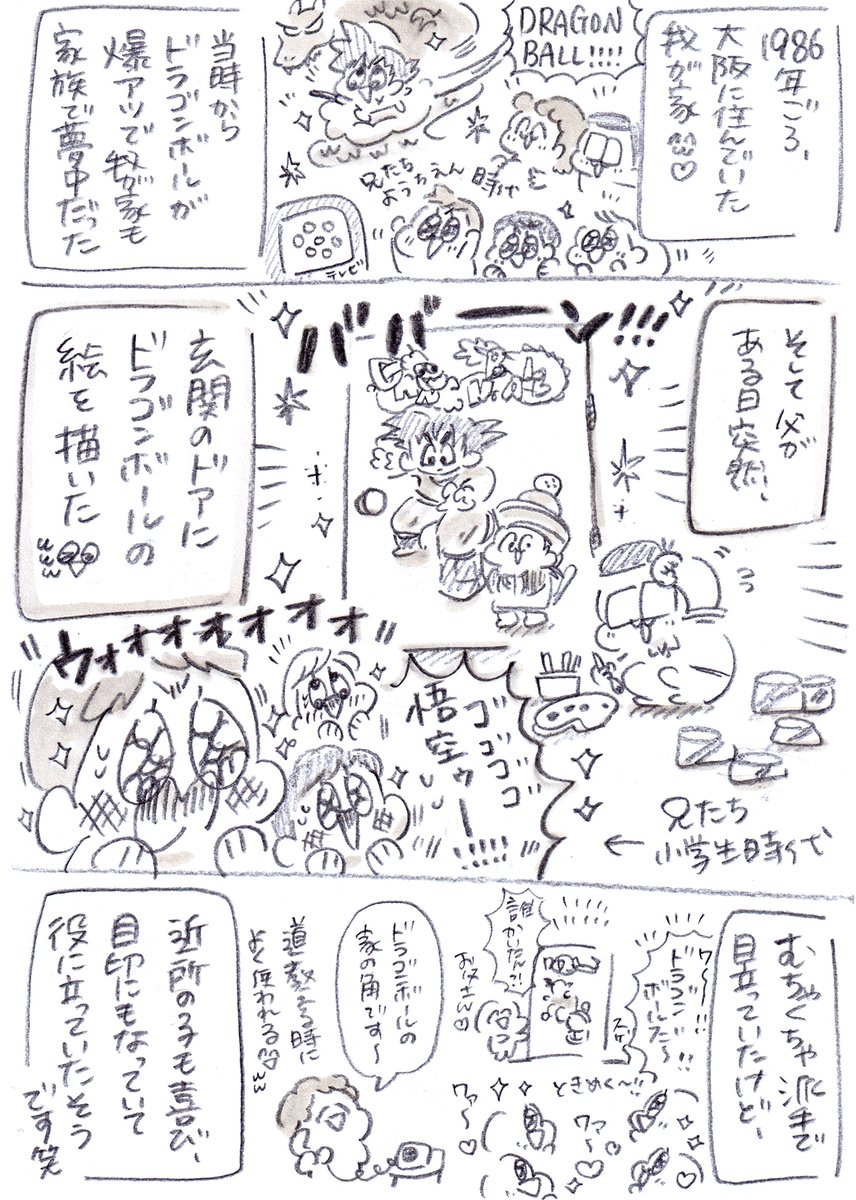 1986
年ごろ、
大阪に住んでいた
我が家
DRAGON
BALL!!!!
兄たち
ようちえん時代
テレビ
当時から
ドラゴンボールが
爆アツで我が家も
家族で夢中だった
そして父が
ある日突然、
バーバーーン!!!
玄関のドアに
ドラゴンボールの
絵を描いた
ウォオオオオオオ
ゴゴゴゴゴ
悟空ゥー!!!!!
兄たち
←小学生時代
むちゃくちゃ派手で
目立っていたけど、
ワ〜!!
ドラゴン
ボールだ〜!!
誰がかいたん?!
お父さん♡
ときめく〜!!
ワァ〜♡
ワァ〜♡
ドラゴンボールの
家の角です〜
道教える時に
よく使われる
近所の子も喜び、
目印にもなっていて
役に立っていたそう
です笑